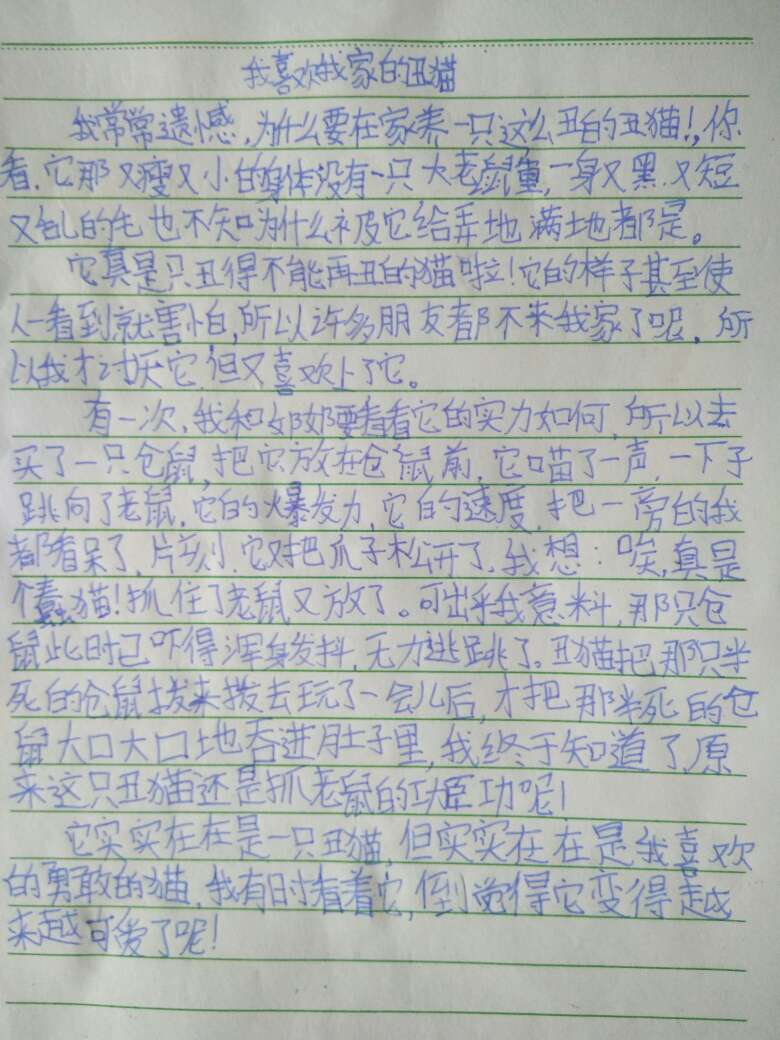 我喜欢我家的丑猫
我常常遗憾,为什么要在家养一只这么丑的丑猫!,你
看.它那又瘦又小的身体没有一只大老鼠重,一身又黑.又短
又乱的毛也不知为什么被它给弄地满地都是。
它真是只丑得不能再丑的猫啦!它的样子甚至使
人一看到就害怕,所以许多朋友都不来我家了呢.所
以我才讨厌它.但又喜欢上了它。
有一次,我和奶奶要看看它的实力如何,所以去
买了一只仓鼠,把它放在仓鼠前,它喵了一声,一下子
跳向了老鼠.它的爆发力,它的速度,把一旁的我
都看呆了,片刻,它又把爪子松开了,我想:唉,真是
个蠢猫!抓住了老鼠又放了。可出乎我意料,那只仓
鼠此时已吓得浑身发抖,无力逃跳了。丑猫把那只半
死的仓鼠拔来拨去玩了一会儿后,才把那半死的仓
鼠大口大口地吞进肚子里,我终于知道了,原
来这只丑猫还是抓老鼠的功臣功呢!
它实实在在是一只丑猫,但实实在在是我喜欢
的勇敢的猫,我有时看着它,倒觉得它变得越
来越可爱了呢!